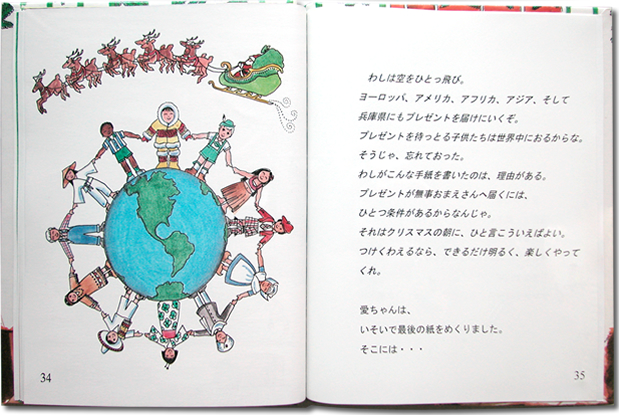 わしは空をひとっ飛び。
ヨーロッパ、アメリカ、アフリカ、アジア、そして
兵庫県にもプレゼントを届けにいくぞ。
プレゼントを待っとる子供たちは世界中におるからな。
そうじゃ、忘れておった。
わしがこんな手紙を書いたのは、理由がある。
プレゼントが無事おまえさんへ届くには、
ひとつ条件があるからなんじゃ。
それはクリスマスの朝に、ひと言こういえばよい。
つけくわえるなら、できるだけ明るく、楽しくやって
くれ。
愛ちゃんは、
いそいで最後の紙をめくりました。
そこには・・・
34
35